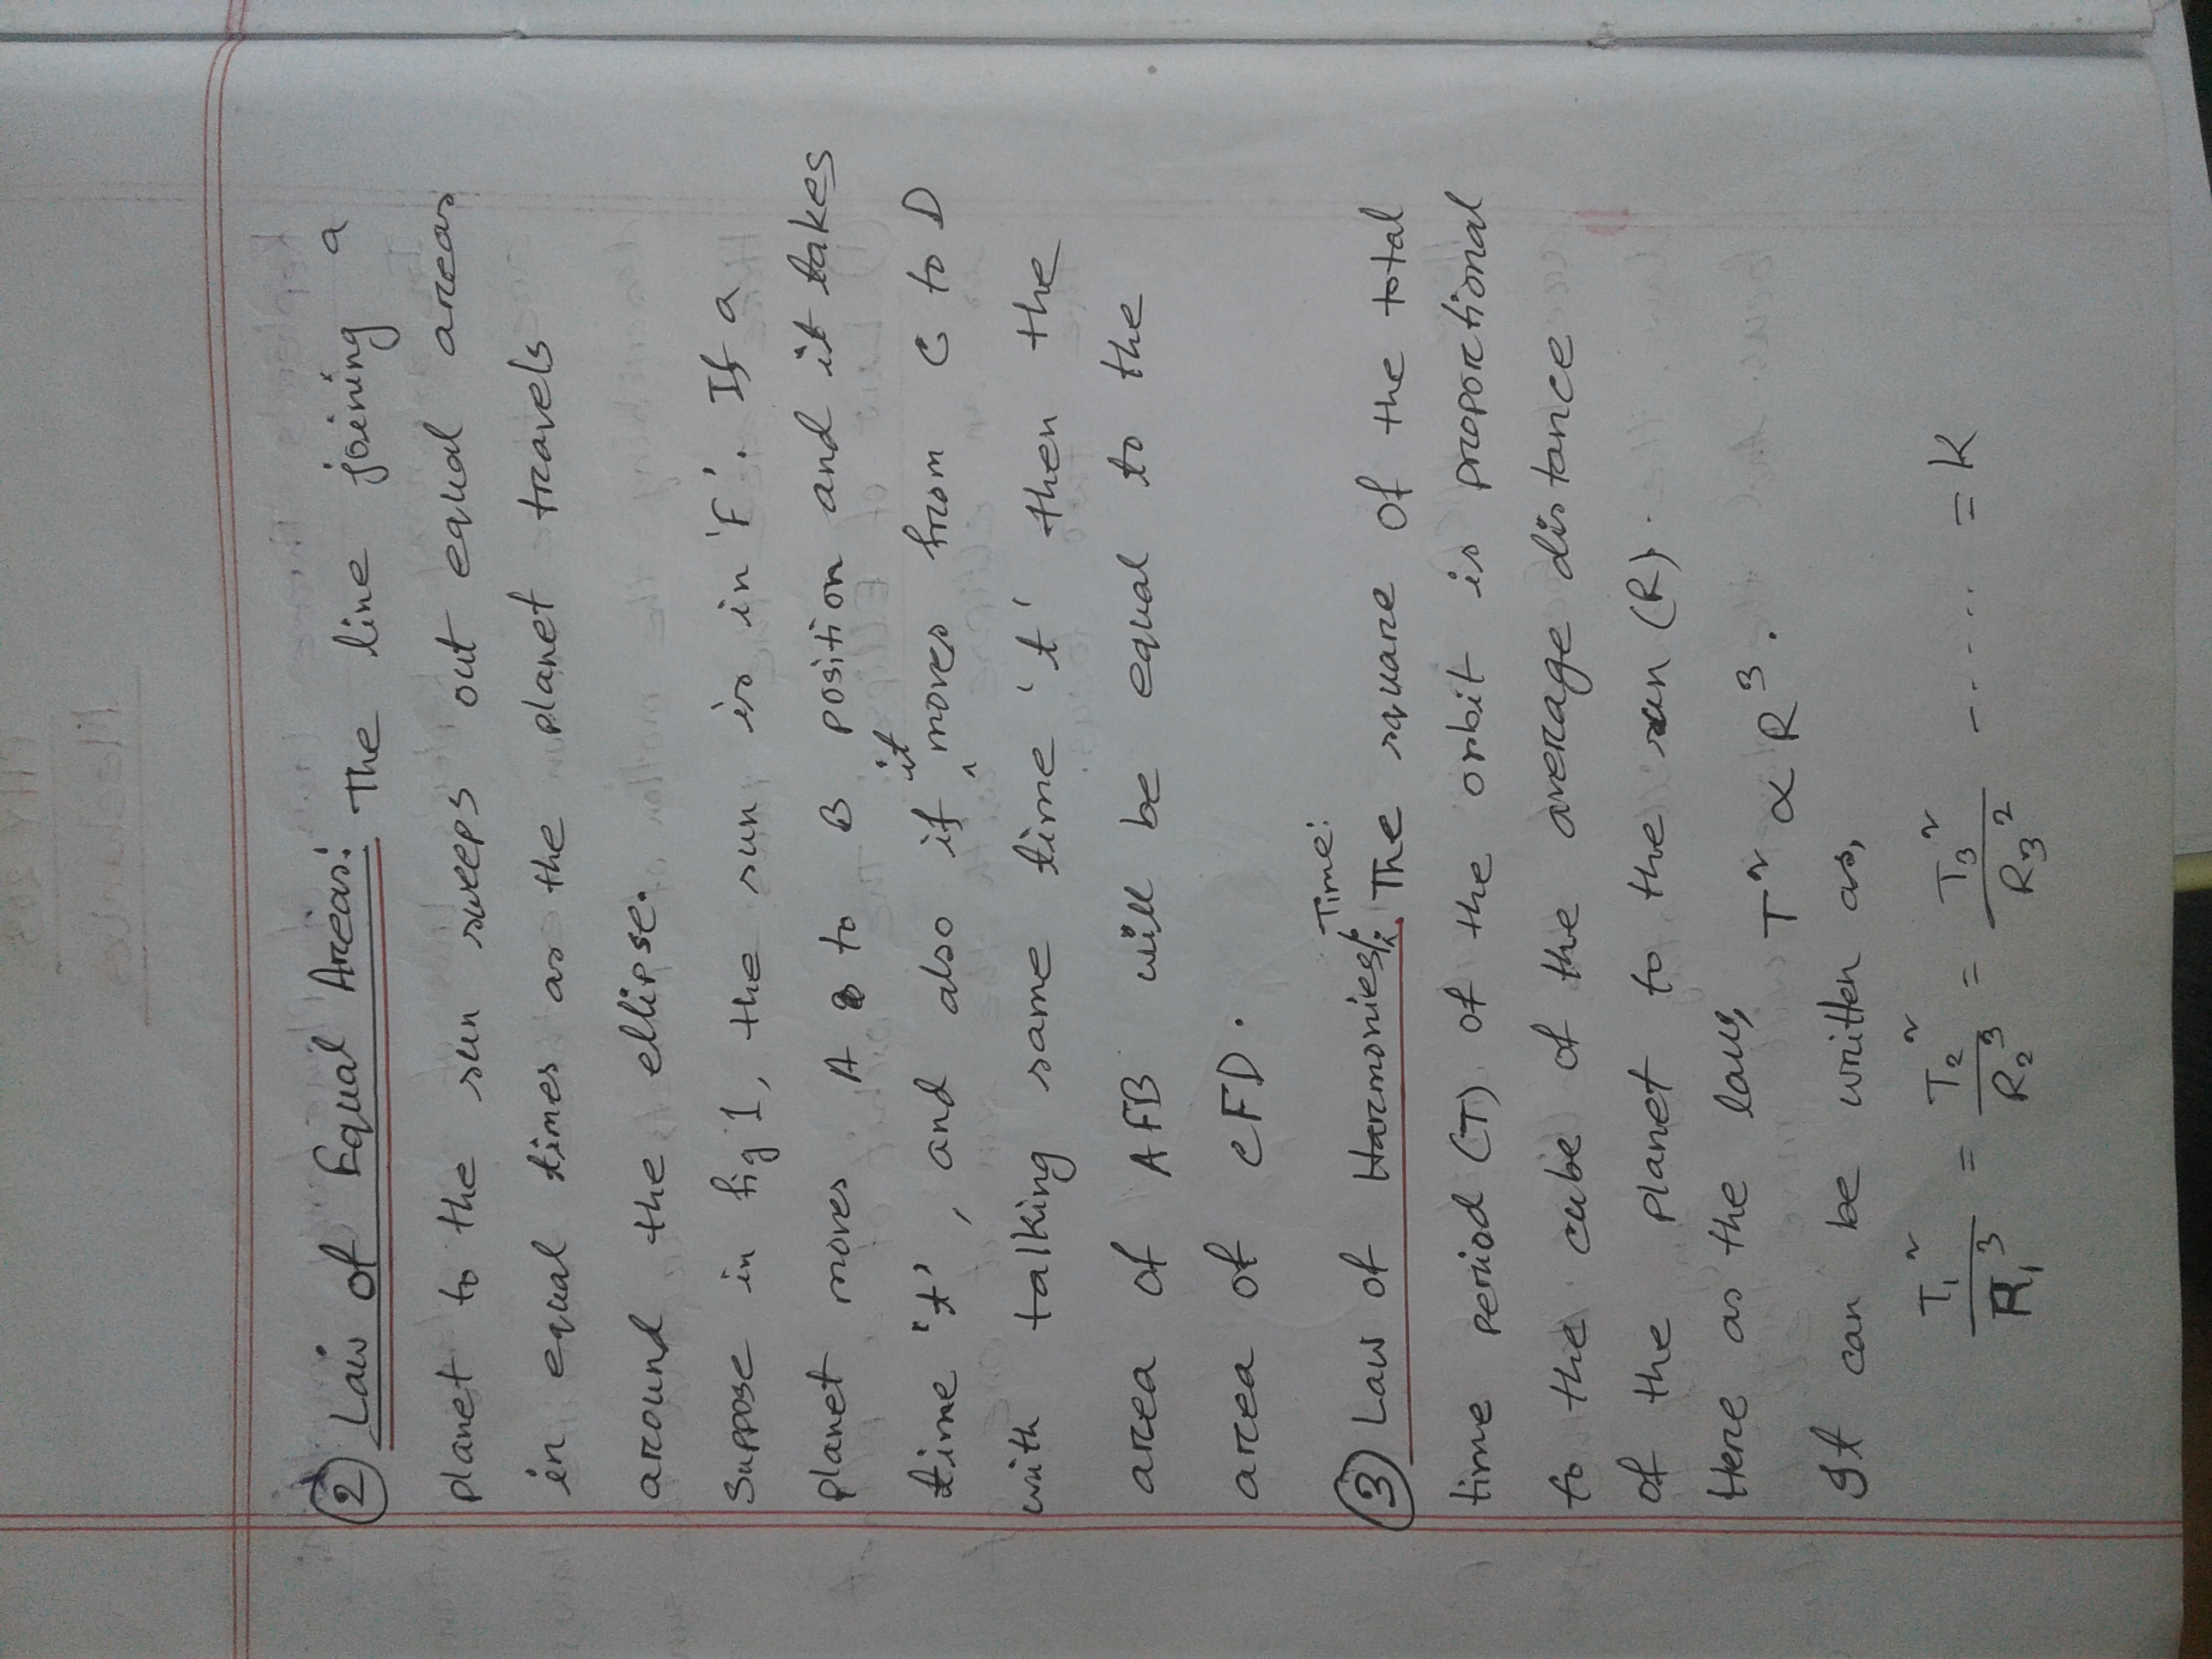 ② Law of Equal Areas: The line joining a
planet to the sun sweeps out equal areas
in equal times as the planet travels
around the ellipse.
Suppose in fig 1, the sun is in 'F'. If a
planet moves A to B position and it takes
time 't', and also if it moves from C to D
with talking same time 't' then the
area of AFB will be equal to the
area of CFD.
Time:
③ Law of Harmonies: The square of the total
time period (T) of the orbit is proportional
to the cube of the average distance
of the planet to the sun (R).
Here as the law,
T² ∝ R³.
It can be written as,
T₁²/R₁³ = T₂²/R₂³ = T₃²/R₃² ------ = K